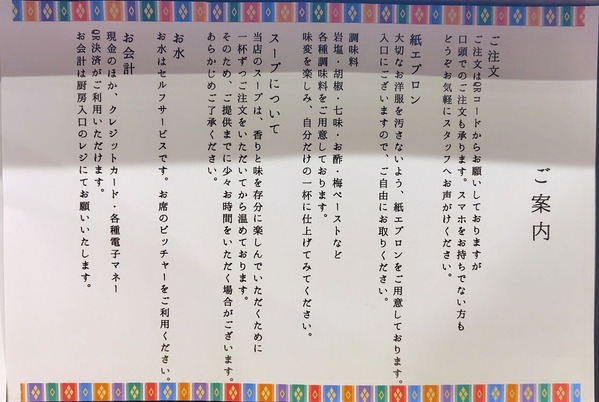 ご案内
ご注文
ご注文はQRコードからお願いしておりますが
口頭でのご注文も承ります。スマホをお持ちでない方も
どうぞお気軽にスタッフへお声がけください。
紙エプロン
大切なお洋服を汚さないよう、紙エプロンをご用意しております。
入口にございますので、ご自由にお取りください。
調味料
岩塩・胡椒・七味・お酢・梅ペーストなど
各種調味料をご用意しております。
味変を楽しみ、自分だけの一杯に仕上げてみてください。
スープについて
当店のスープは、香りと味を存分に楽しんでいただくために
一杯ずつご注文をいただいてから温めております。
そのため、ご提供までに少々お時間をいただく場合がございます。
あらかじめご了承ください。
お水
お水はセルフサービスです。お席のピッチャーをご利用ください。
お会計
現金のほか、クレジットカード・各種電子マネー
QR決済がご利用いただけます。
お会計は厨房入口のレジにてお願いいたします。